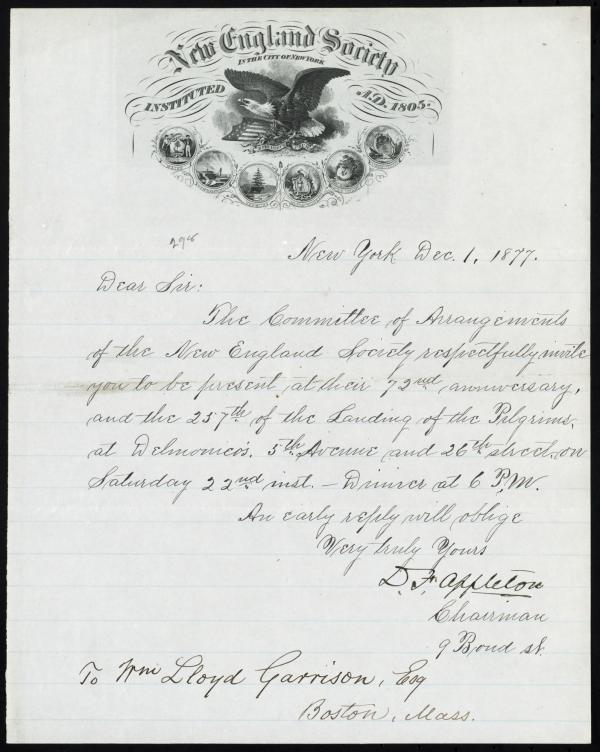 New England Society
IN THE CITY OF NEW YORK
INSTITUTED A.D. 1805.
New York Dec. 1, 1877.
Dear Sir:
The Committee of Arrangements
of the New England Society respectfully invite
you to be present at their 72nd anniversary,
and the 257th of the Landing of the Pilgrims,
at Delmonico's, 5th Avenue and 26th street, on
Saturday 22nd inst. — Dinner at 6 P.M.
An early reply will oblige
Very truly Yours
D. F. Appleton
Chairman
9 Bond St.
To Wm Lloyd Garrison, Esq
Boston, Mass.